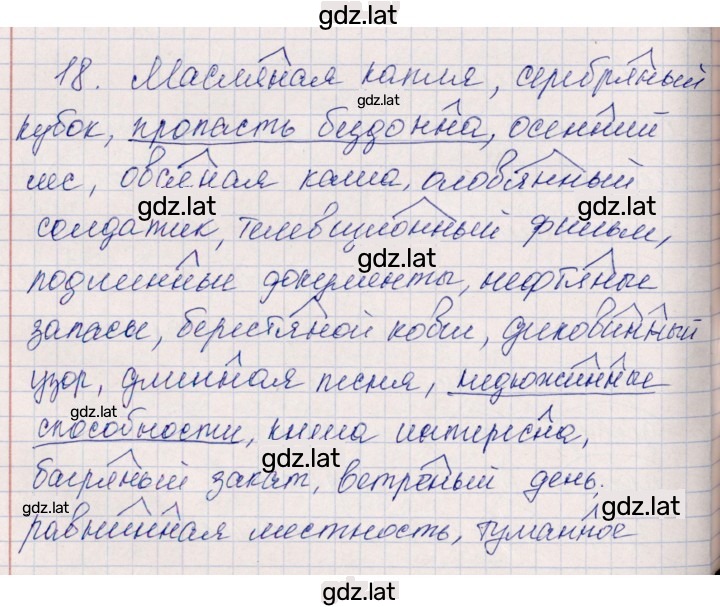 gdz.lat
18. Масляная капля, серебряный
gdz.lat
кубок, пропасть бездонна, осенний
лес, овсяная каша, оловянный
gdz.lat
солдатик, телевизионный фильм,
gdz.lat
подлинные документы, нефтяные
запасы, берестяной ковш, диковинный
узор, длинная песня, недюжинные
gdz.lat
способности, книга интересна,
gdz.lat
багряный закат, ветреный день,
gdz.lat gdz.lat
равнинная местность, туманное
gdz.lat